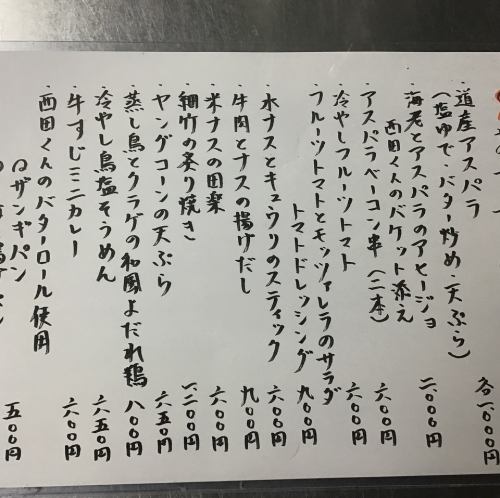 ・道産アスパラ
(塩ゆで・バター炒め・天ぷら) 各一〇〇〇円
・海老とアスパラのアヒージョ
西田くんのバケット添え 二〇〇〇円
・アスパラベーコン串(二本) 六〇〇円
・冷やしフルーツトマト 六〇〇円
・フルーツトマトとモッツァレラのサラダ
トマトドレッシング 九〇〇円
・水ナスとキュウリのスティック 六〇〇円
・牛肉とナスの揚げだし 九〇〇円
・米ナスの田楽 六〇〇円
・細竹の炙り焼き 一二〇〇円
・ヤングコーンの天ぷら 六五〇円
・蒸し鳥とクラゲの和風よだれ鶏 八〇〇円
・冷やし鳥塩そうめん 六五〇円
・牛すじミニカレー 六〇〇円
・西田くんのバターロール使用
ザンギパン 五〇〇円